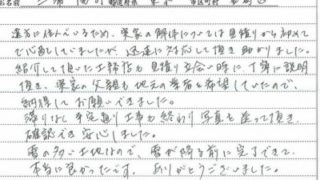 遠方に住んでいるため、実家の解体については見積りから初めて
で心配していましたが、迅速に対応して頂き助かりました。
紹介して頂いた工務店も見積り立会い時に丁寧に説明
頂き、実家の父親も地元の業者を希望していたので、
納得してお願いできました。
滞りなく予定通り工事も終わり写真も送って頂き、
確認でき安心しました。
雪の多い土地なので、雪が降る前に完了できて
本当に良かったです。ありがとうございました。